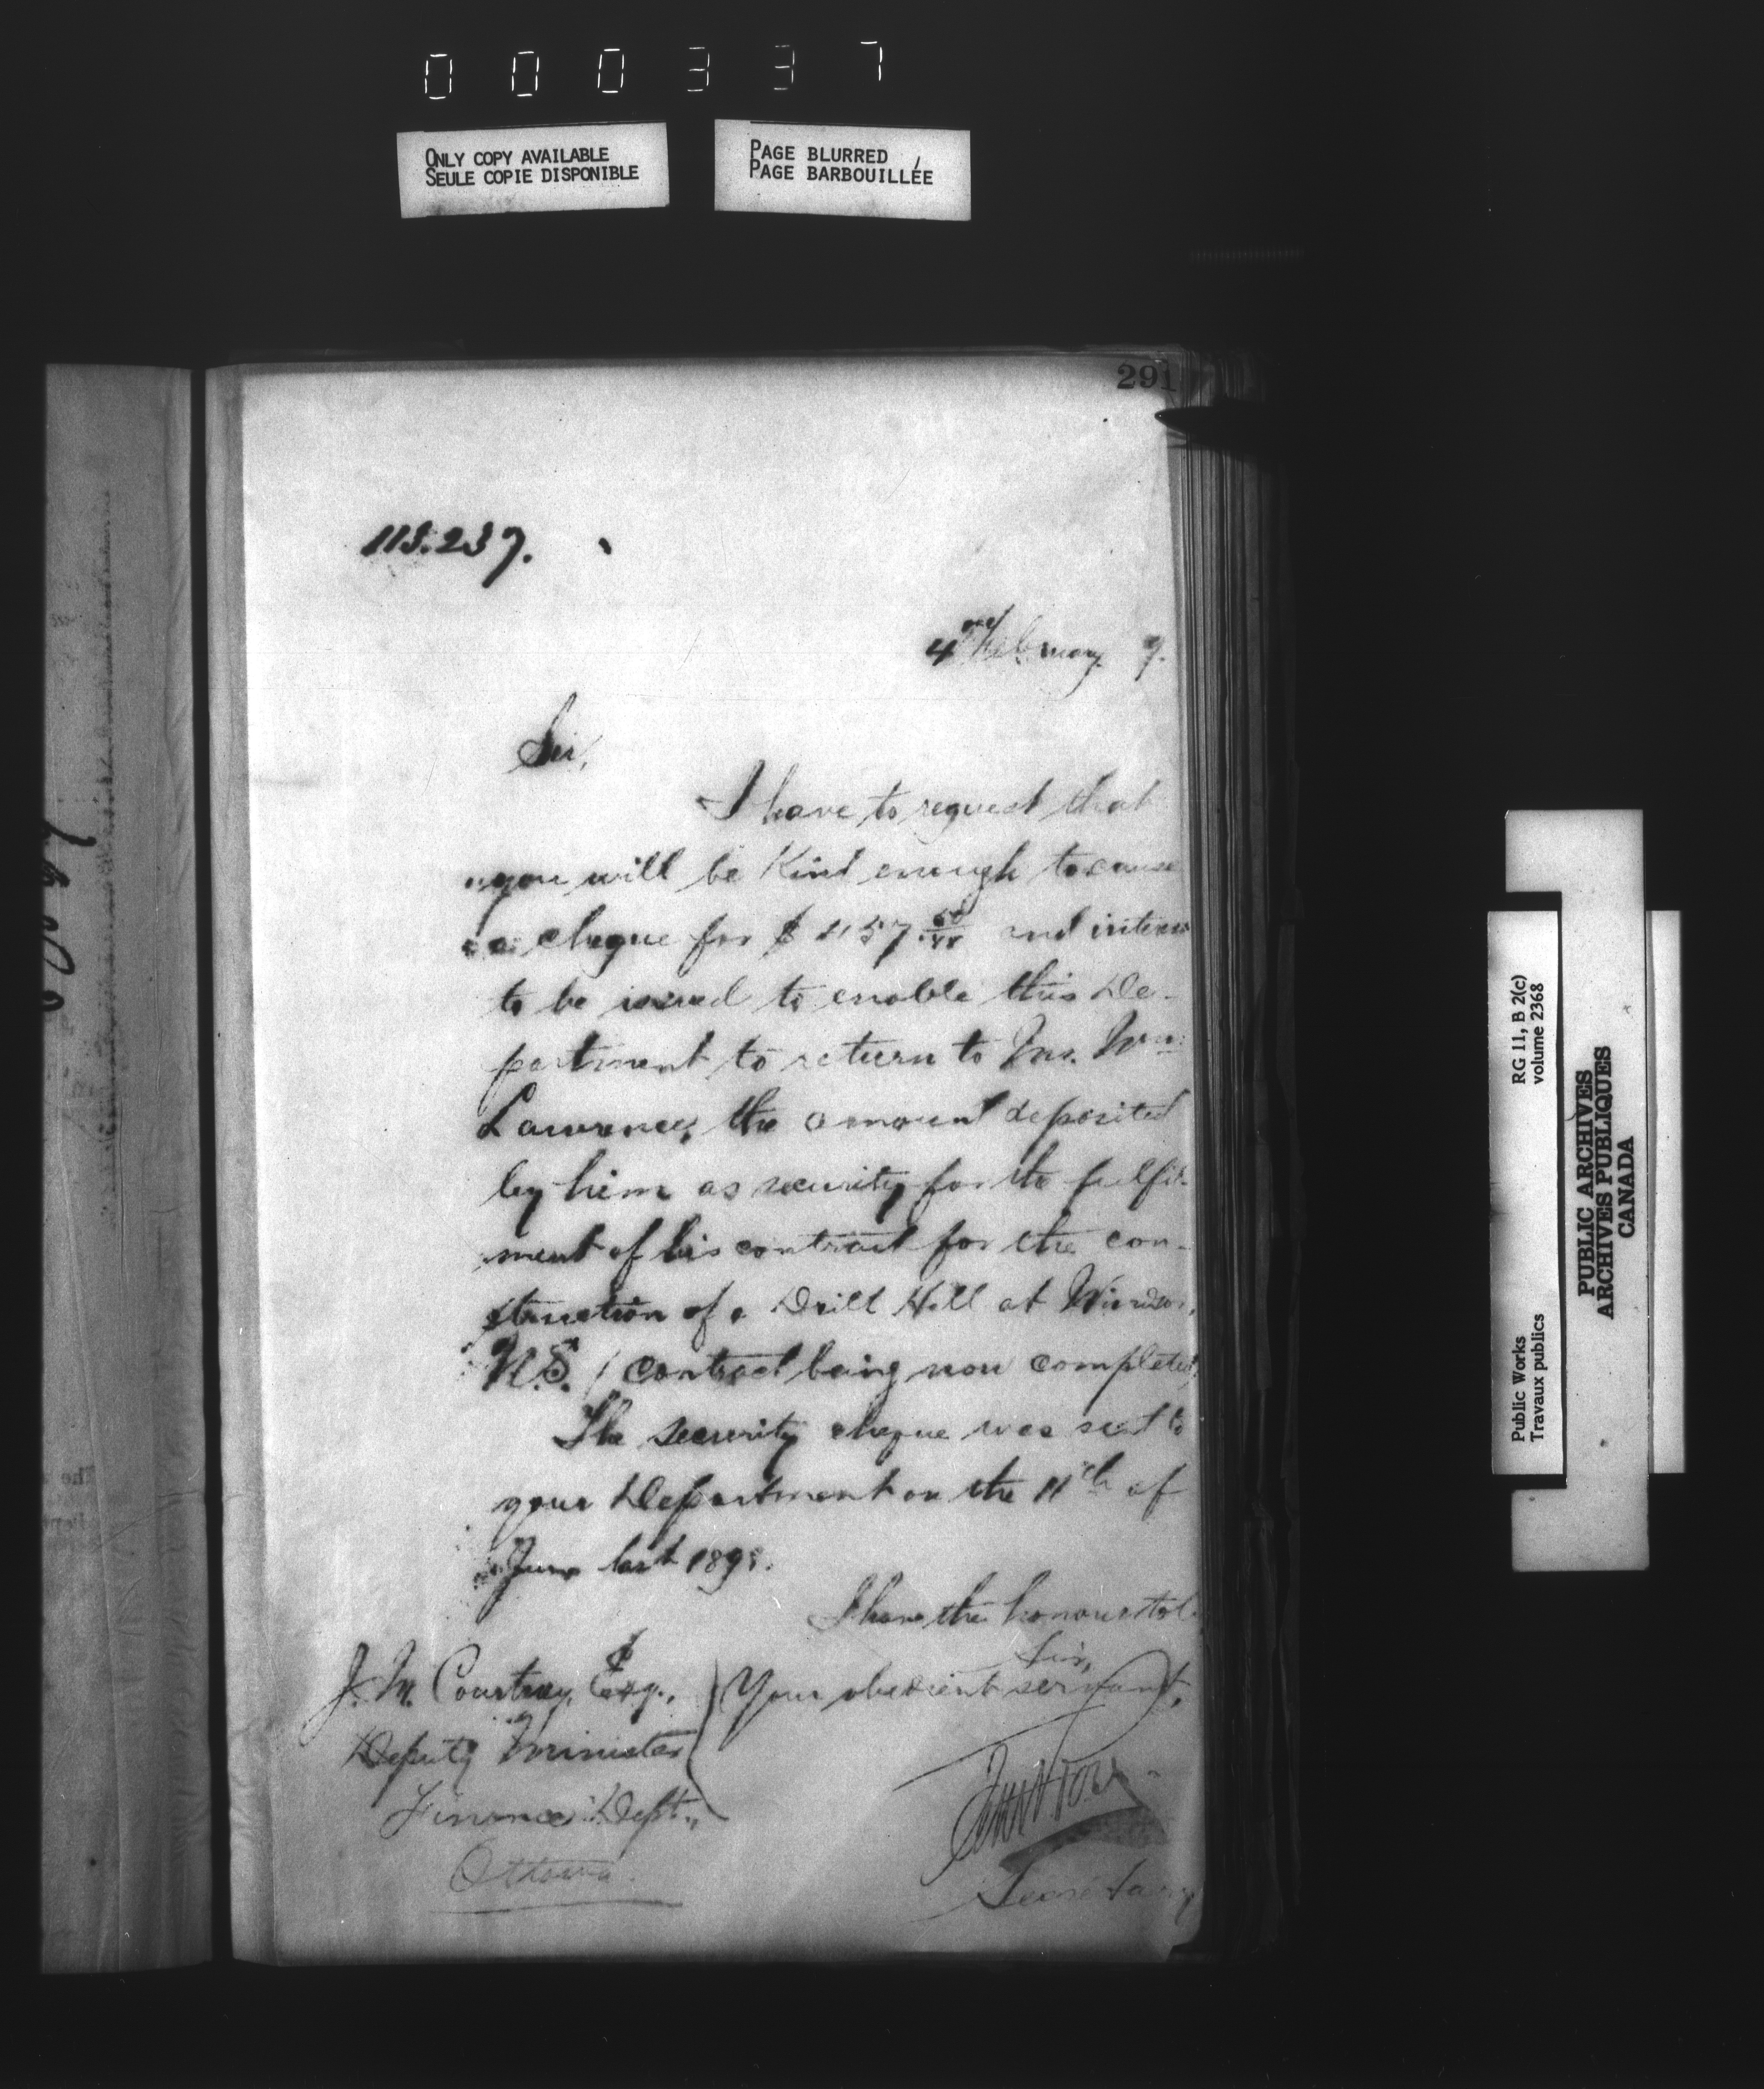 000337
ONLY COPY AVAILABLE
SEULE COPIE DISPONIBLE
PAGE BLURRED
PAGE BARBOUILLÉE
291
4 February 9.
Sir,
I have to request that
you will be kind enough to cause
a cheque for $ and interest
to be issued to enable this De-
partment to return to Mr. Wm:
Lawrence, the amount deposited
by him as security for the fulfil-
ment of his contract for the con-
struction of a Drill Hall at Windsor,
N.S. / contract being now completed
The security cheque was sent to
your Department on the 11th of
June last
I have the honour to be
Sir,
Your obedient servant,
J. M. Courtney, Esq.,
Deputy Minister
Finance Dept.,
Ottawa.
Secretary
RG 11, B 2(c)
volume 2368
Public Works
Travaux publics
PUBLIC ARCHIVES
ARCHIVES PUBLIQUES
CANADA